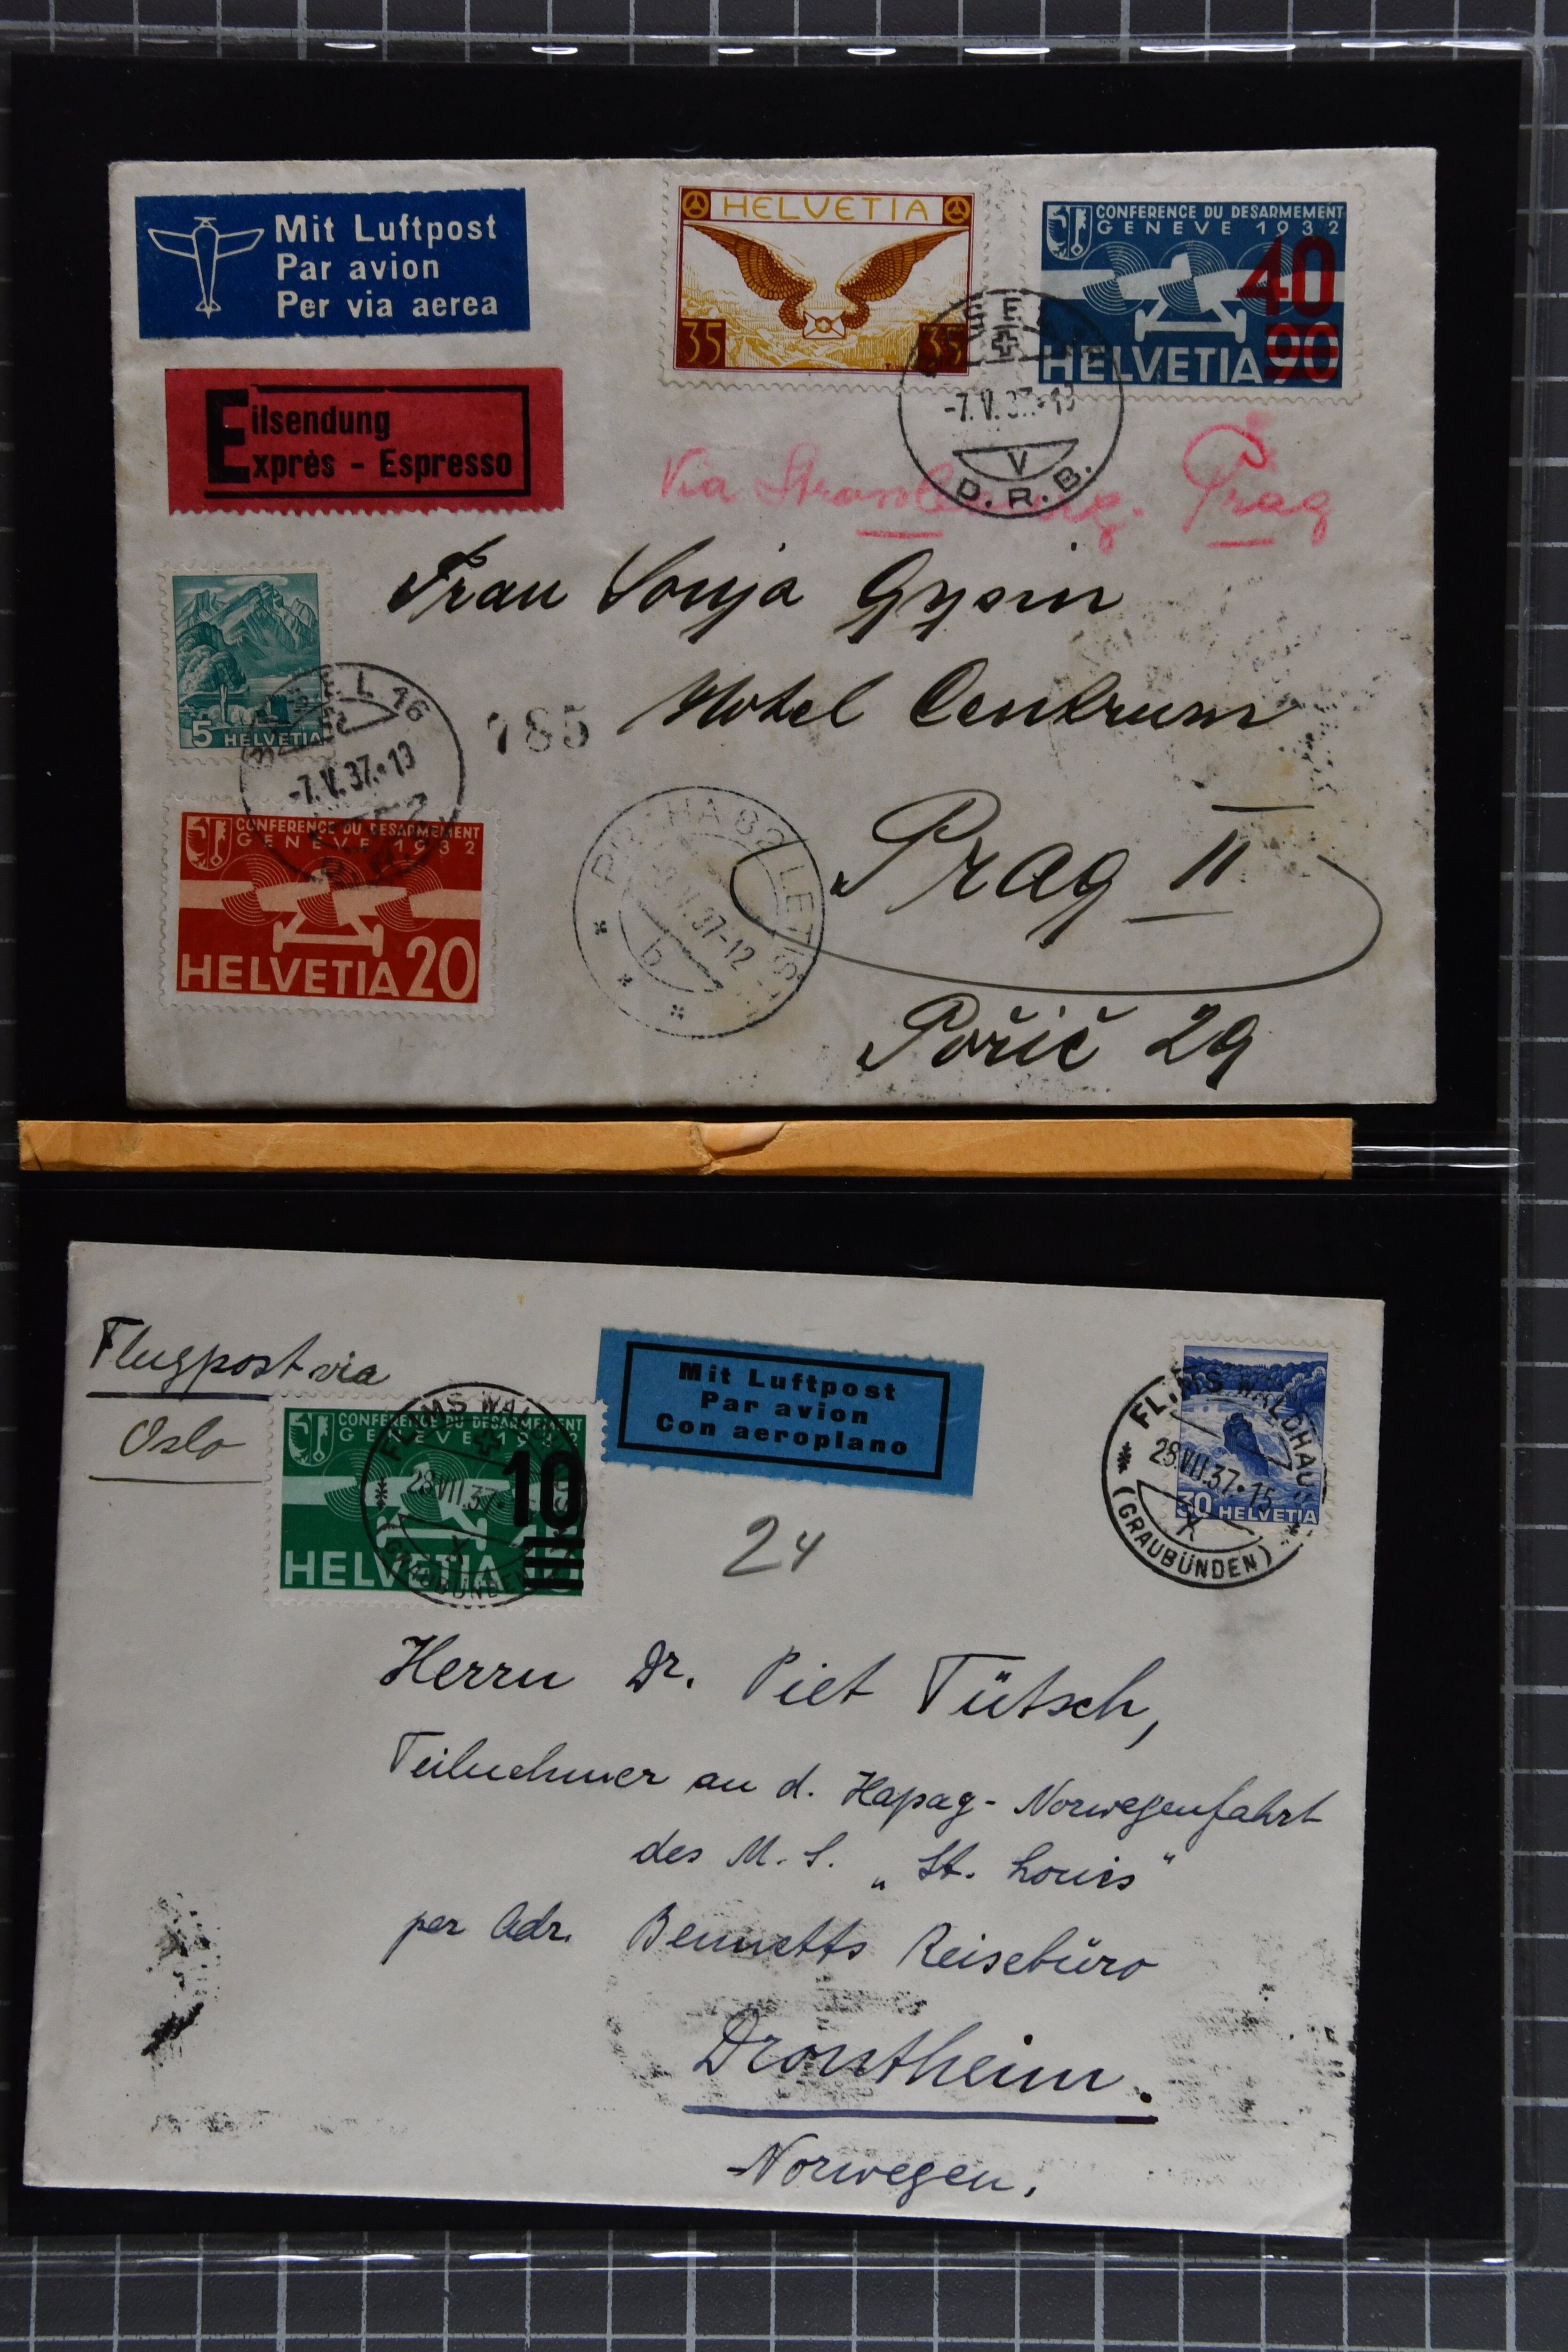 Mit Luftpost
Par avion
Per via aerea
Eilsendung
Exprès - Espresso
HELVETIA
35 35
CONFERENCE DU DESARMEMENT
GENEVE 1932
40
HELVETIA 90
-7.V.37.-19
V
D.R.B.
Via Strassburg. Prag
Frau Sonja Gysin
Hotel Centrum
Prag II
Pořič 29
5 HELVETIA
-7.V.37.-19
785
CONFERENCE DU DESARMEMENT
GENEVE 1932
HELVETIA 20
PRAHA 82 LETIŠ
37-12
b
Flugpost via
Oslo
CONFERENCE DU DESARMEMENT
GENEVE 1932
10
HELVETIA 15
FLIMS WALDHAUS
28.VII.37.
X
(GRAUBÜNDEN)
Mit Luftpost
Par avion
Con aeroplano
FLIMS WALDHAUS
28.VII.37.15
X
(GRAUBÜNDEN)
30 HELVETIA
24
Herrn Dr. Piet Tütsch,
Teilnehmer an d. Hapag-Norwegenfahrt
des M.S. „St. Louis"
per Adr. Bennetts Reisebüro
Drontheim.
Norwegen.